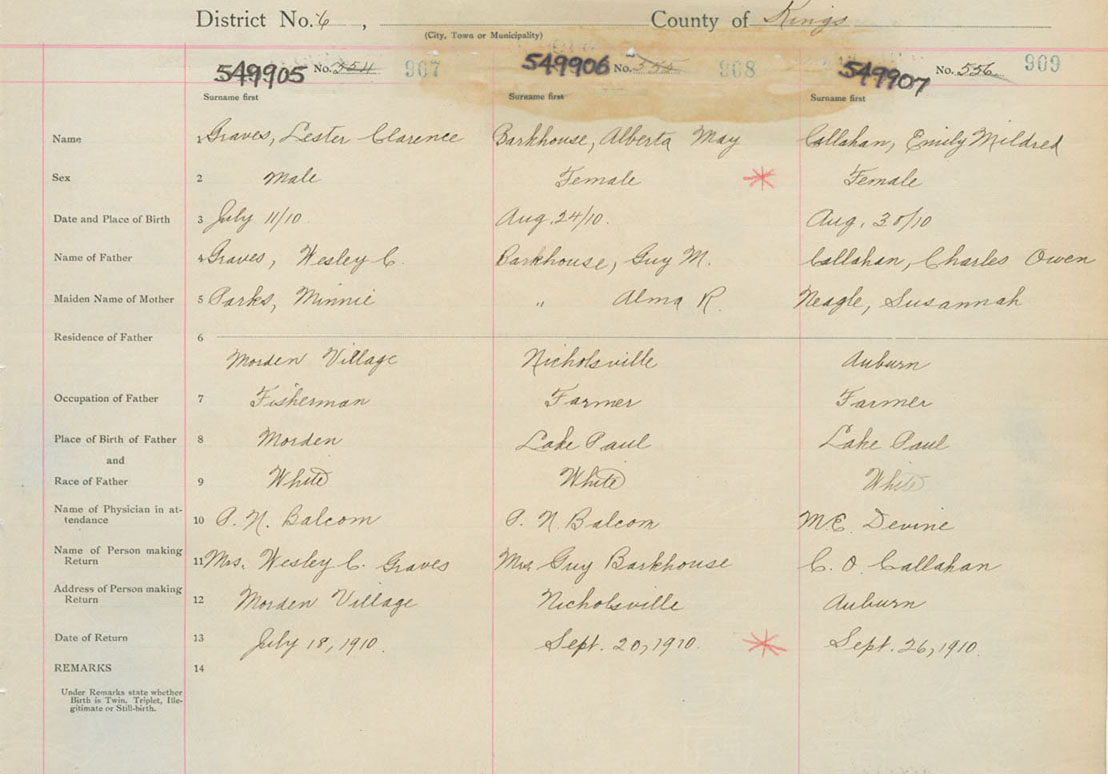 District No. 6, County of Kings
(City, Town or Municipality)
549905 No. 554 967 549906 No. 555 968 549907 No. 556 969
Surname first Surname first Surname first
Name 1 Graves, Lester Clarence Barkhouse, Alberta May Callahan, Emily Mildred
Sex 2 Male Female * Female
Date and Place of Birth 3 July 11/10. Aug. 24/10. Aug. 30/10
Name of Father 4 Graves, Wesley C. Barkhouse, Guy M. Callahan, Charles Owen
Maiden Name of Mother 5 Parks, Minnie " Alma R. Neagle, Susannah
Residence of Father 6
Morden Village Nicholsville Auburn
Occupation of Father 7 Fisherman Farmer Farmer
Place of Birth of Father 8 Morden Lake Paul Lake Paul
and
Race of Father 9 White White White
Name of Physician in at-
tendance 10 P. N. Balcom P. N. Balcom M.E. Devine
Name of Person making
Return 11 Mrs. Wesley C. Graves Mrs Guy Barkhouse C. O. Callahan
Address of Person making
Return 12 Morden Village Nicholsville Auburn
Date of Return 13 July 18, 1910. Sept. 20, 1910. * Sept. 26, 1910.
REMARKS 14
Under Remarks state whether
Birth is Twin, Triplet, Ille-
gitimate or Still-birth.